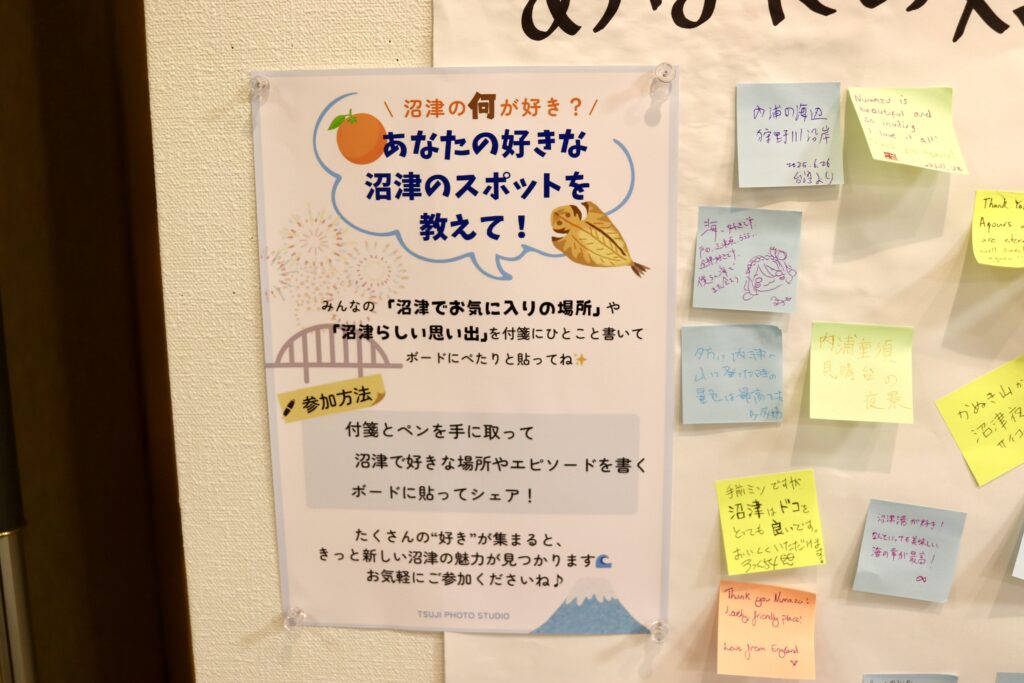 \ 沼津の何が好き？ /
あなたの好きな
沼津のスポットを
教えて！
みんなの「沼津でお気に入りの場所」や
「沼津らしい思い出」を付箋にひとこと書いて
ボードにぺたりと貼ってね✨
参加方法
付箋とペンを手に取って
沼津で好きな場所やエピソードを書く
ボードに貼ってシェア！
たくさんの“好き”が集まると、
きっと新しい沼津の魅力が見つかります🌊
お気軽にご参加くださいね♪
TSUJI PHOTO STUDIO
内浦の海辺
狩野川沿岸
2025.6.26
台湾より
Numazu is
beautiful and
so inviting.
I love it all
海、好きです
内浦重須
見晴台の
夜景
かぬき山
沼津夜
サイコ
沼津はドコを
とても良いです。
沼津港が好き！
なんといっても美味しい
海の幸が最高！
Thank you Numazu!
Lovely, friendly place!
Love from England
x
Thank You
Aqours
are